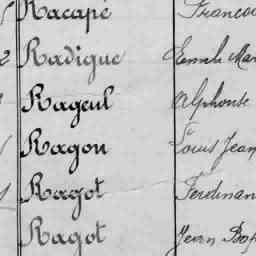 Racapé Francoi
2 Radigue Emile Mar
Rageul Alphonse
Ragon Louis Jean
Ragot Ferdinan
Ragot Jean Bap